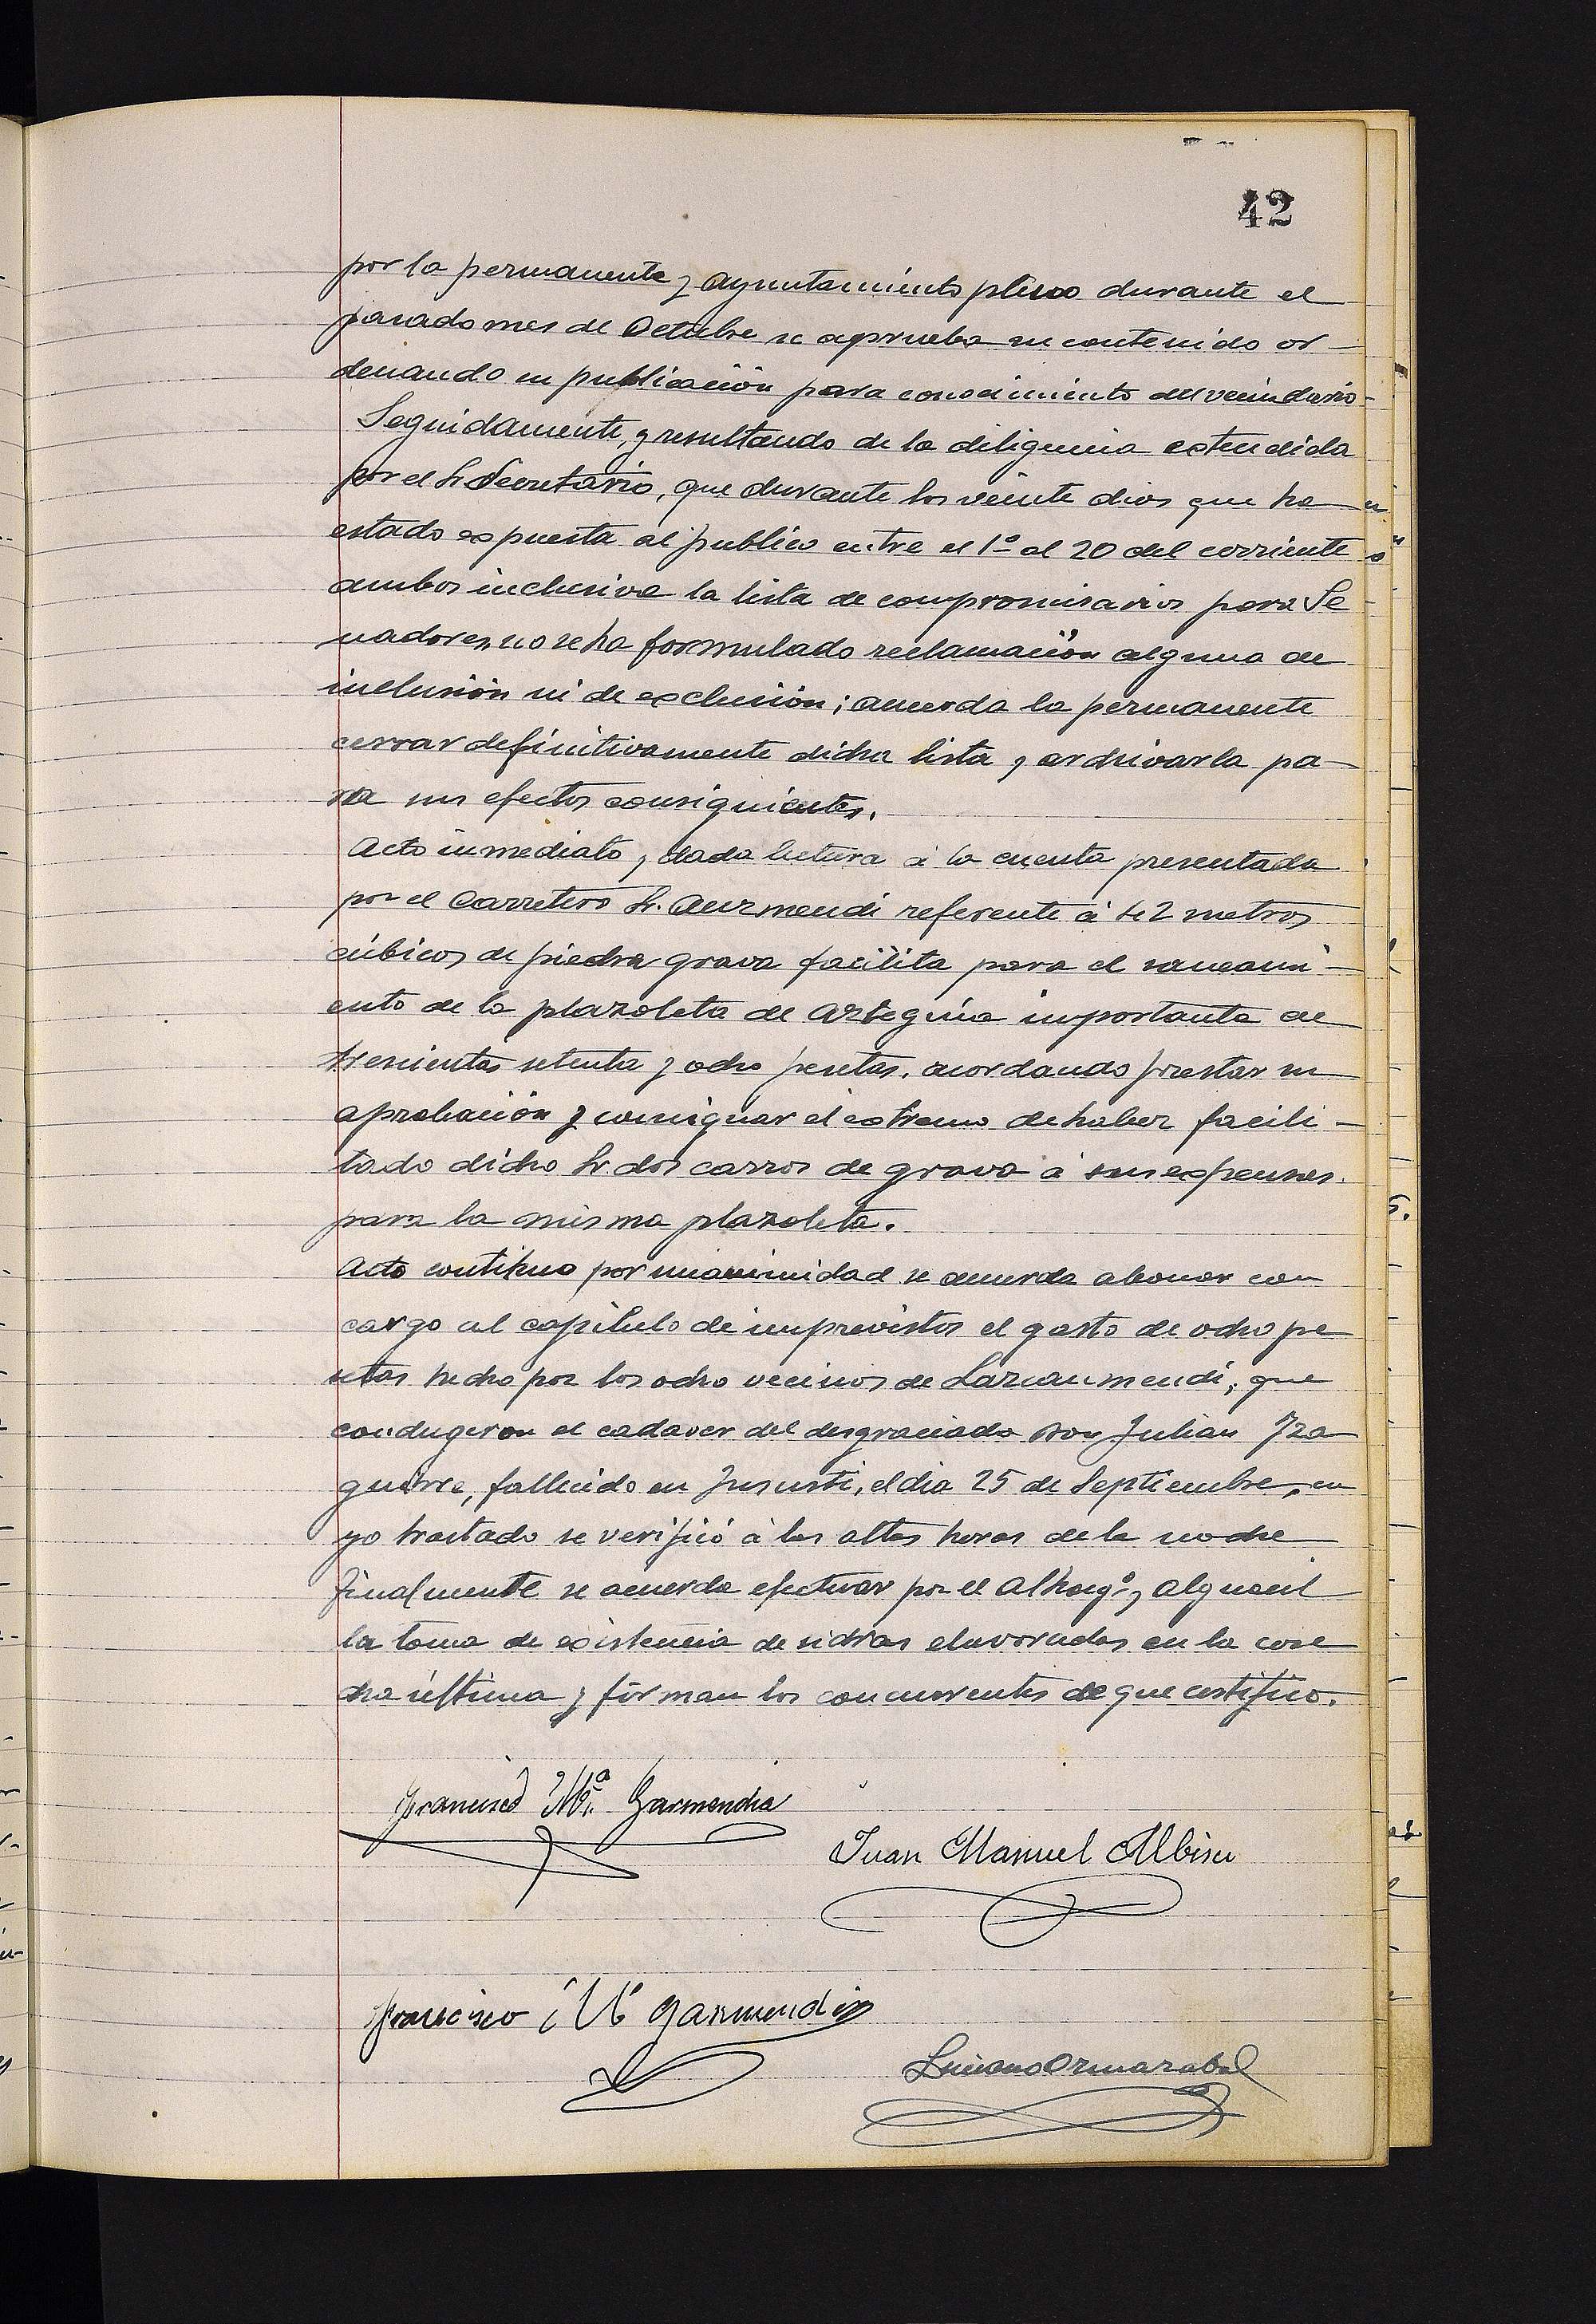 42
por la permanente y ayuntamiento pleno durante el
pasado mes de Octubre se aprueba su contenido or-
denando su publicación para conocimiento del vecindario-
Seguidamente, y resultando de la diligencia extendida
por el Sr Secretario, que durante los veinte dias que ha
estado expuesta al publico entre el 1º al 20 del corriente
ambos inclusive la lista de compromisarios para Se
nadores, no se ha formulado reclamación alguna de
inclusión ni de exclusión; acuerda la permanente
cerrar definitivamente dicha lista y archivarla pa-
ra sus efectos consiguientes.
Acto inmediato, dada lectura á la cuenta presentada
por el Carretero Sr. Aurmendi referente á 42 metros
cúbicos de piedra grava facilita para el saneami-
ento de la plazoleta de Arteguia importante de
trescientas setenta y ocho pesetas. acordando prestar su
aprobación y consignar el extremo de haber facili-
tado dicho Sr. dos carros de grava á sus expensas
para la misma plazoleta.
Acto contituo por unanimidad se acuerda abonar con
cargo al capitulo de imprevistos el gasto de ocho pe
setas hecho por los ocho vecinos de Larzaunmendi, que
condugeron el cadaver del desgraciado Don Julian Iza
guirre, fallecido en Insusti, el dia 25 de Septiembre, cu
yo trastado se verificó á las altas horas de la noche
finalmente se acuerda efectuar por el Alhogº y alguacil
la toma de existencia de sidras elavoradas en la cose
cha última y firman los concurrentes de que certifico.
Francisco Mª Garmendia
Juan Manuel Albisu
Francisco Mª Garmendia
Luciano Ormazabal